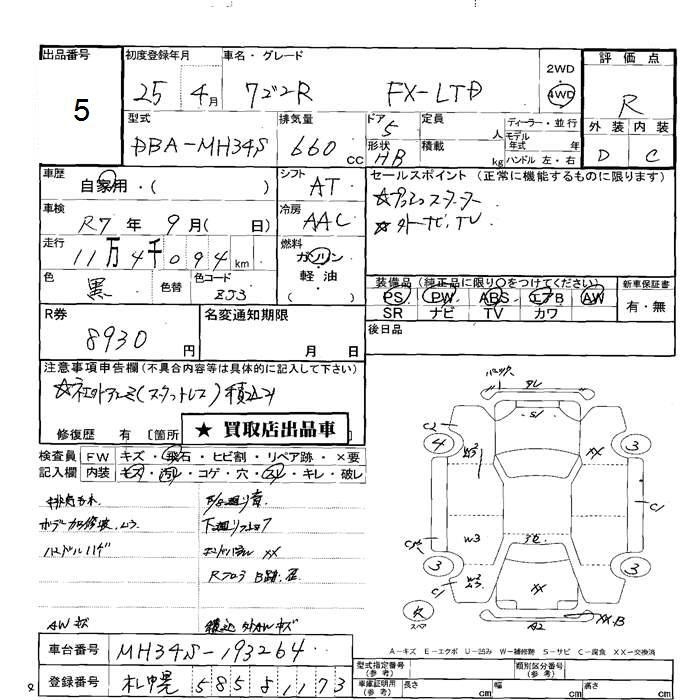 出品番号
5
初度登録年月
25 4月
車名・グレード
ワゴンR FX-LTD
2WD
4WD
評価点
R
外装 内装
D C
型式
DBA-MH34S
排気量
660 CC
ドア 5
形状 HB
定員 人
積載 kg
ディーラー・並行
モデル年式 年
ハンドル 左・右
車歴
自家用・( )
シフト
AT
セールスポイント (正常に機能するものに限ります)
☆プッシュスターター
☆外ナビ、TV
車検
R7年 9月( 日)
冷房
AAC
走行
11万4千094km
燃料
ガソリン
軽・油
( )
色
黒
色替
色コード
ZJ3
装備品 (純正品に限り〇をつけてください)
PS PW ABS エアB AW
SR ナビ TV カワ
新車保証書
有・無
後日品
R券
8930 円
名変通知期限
月 日
注意事項申告欄(不具合内容等は具体的に記入して下さい)
(スタットレス)積込み
修復歴 有 [箇所
★ 買取店出品車
検査員記入欄
FW キズ・飛石・ヒビ割・リペア跡・×要
内装 キズ・汚れ・コゲ・穴・スレ・キレ・破レ
ハンドルハゲ
AW キズ
積込 外AWキズ
車台番号
MH34S-193264
登録番号
札幌 585 す 1173
A-キズ E-エクボ U-凹み W-補修跡 S-サビ C-腐食 XX-交換済
型式指定番号(参考)
類別区分番号(参考)
車庫証明用(参考)
長さ cm
幅 cm
高さ cm
C2
4
W3
XX
3
C1
S1
3
W3
W2
C1
XX
3
R
スペア
A2
XX.B